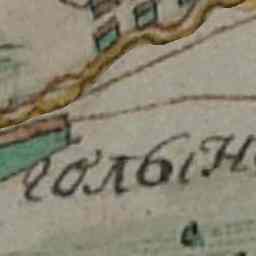 голбін